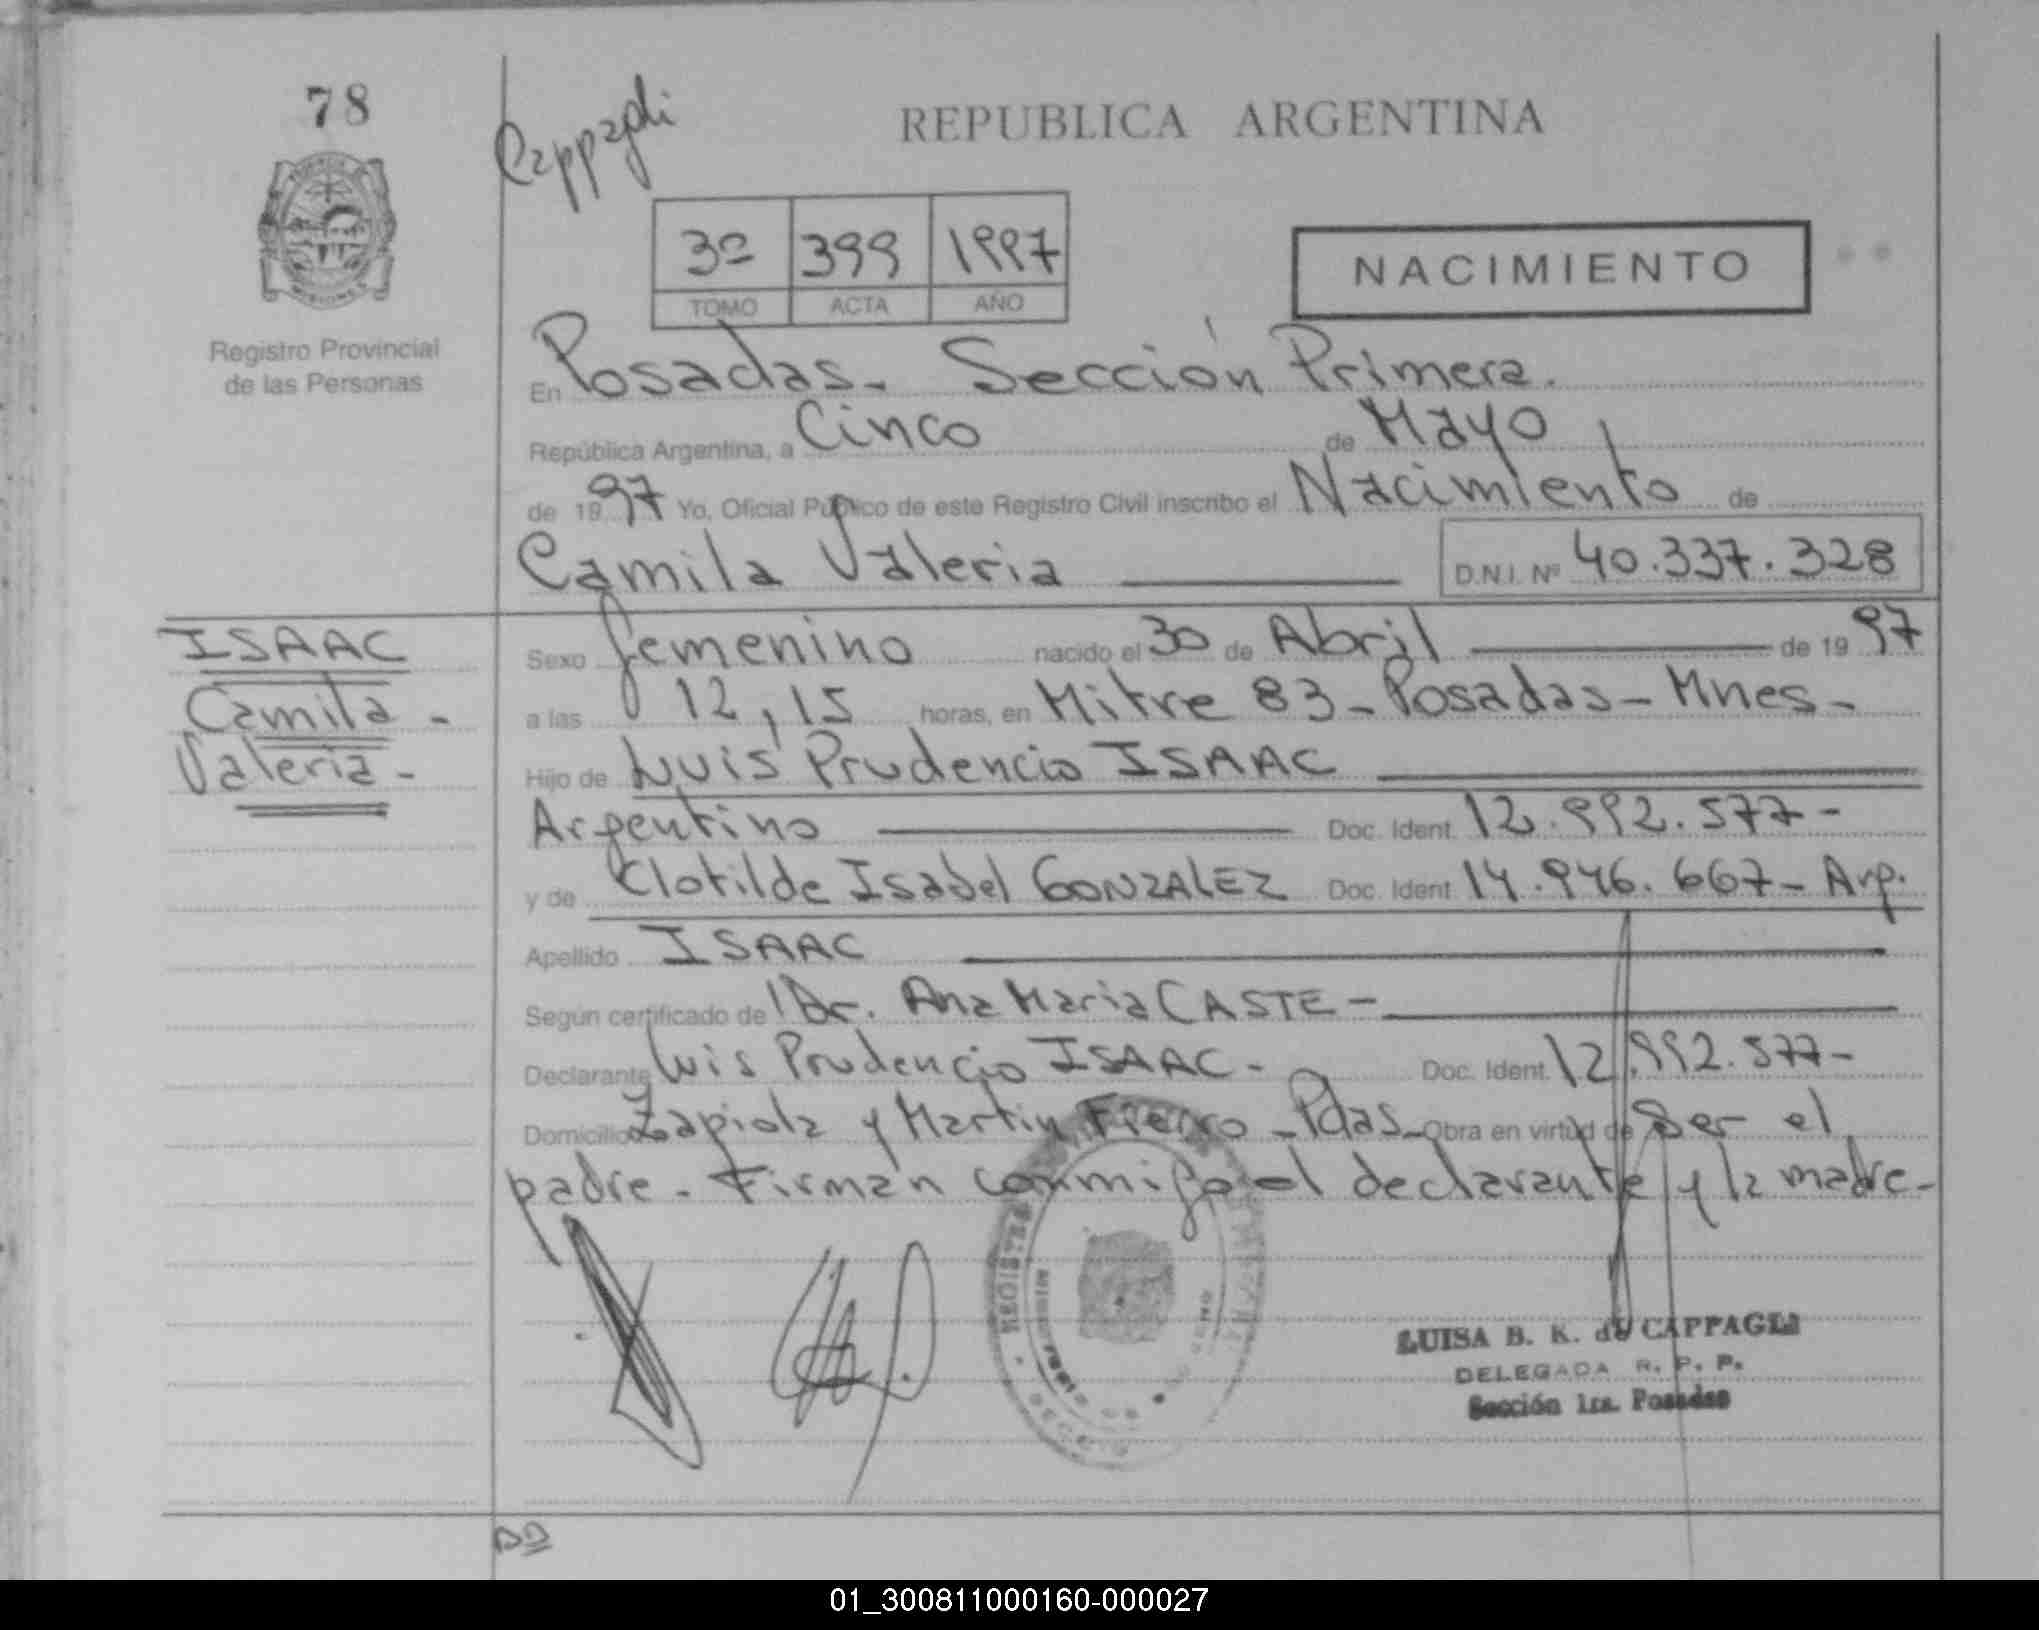 78
Cappagli
REPUBLICA ARGENTINA
3º 399 1997
TOMO ACTA AÑO
NACIMIENTO
MISIONES
Registro Provincial
de las Personas
En Posadas - Sección Primera.
República Argentina, a Cinco de Mayo
de 1997 Yo, Oficial Público de este Registro Civil inscribo el Nacimiento de
Camila Valeria D.N.I. Nº 40.337.328
ISAAC
Camila -
Valeria -
Sexo femenino nacido el 30 de Abril de 1997
a las 12,15 horas, en Mitre 83 - Posadas - Mnes -
Hijo de Luis Prudencio ISAAC
Argentino Doc. Ident. 12.992.577 -
y de Clotilde Isabel GONZALEZ Doc. Ident. 14.946.667 - Arg.
Apellido ISAAC
Según certificado de Dr. Ana Maria CASTE -
Declarante Luis Prudencio ISAAC - Doc. Ident. 12.992.577 -
Domicilio Zapiola y Martin Fierro - Pdas - Obra en virtud de Ser el
padre - Firman conmigo el declarante y la madre -
LUISA B. K. de CAPPAGLI
DELEGADA R. P. P.
Sección 1ra. Posadas
01_300811000160-000027